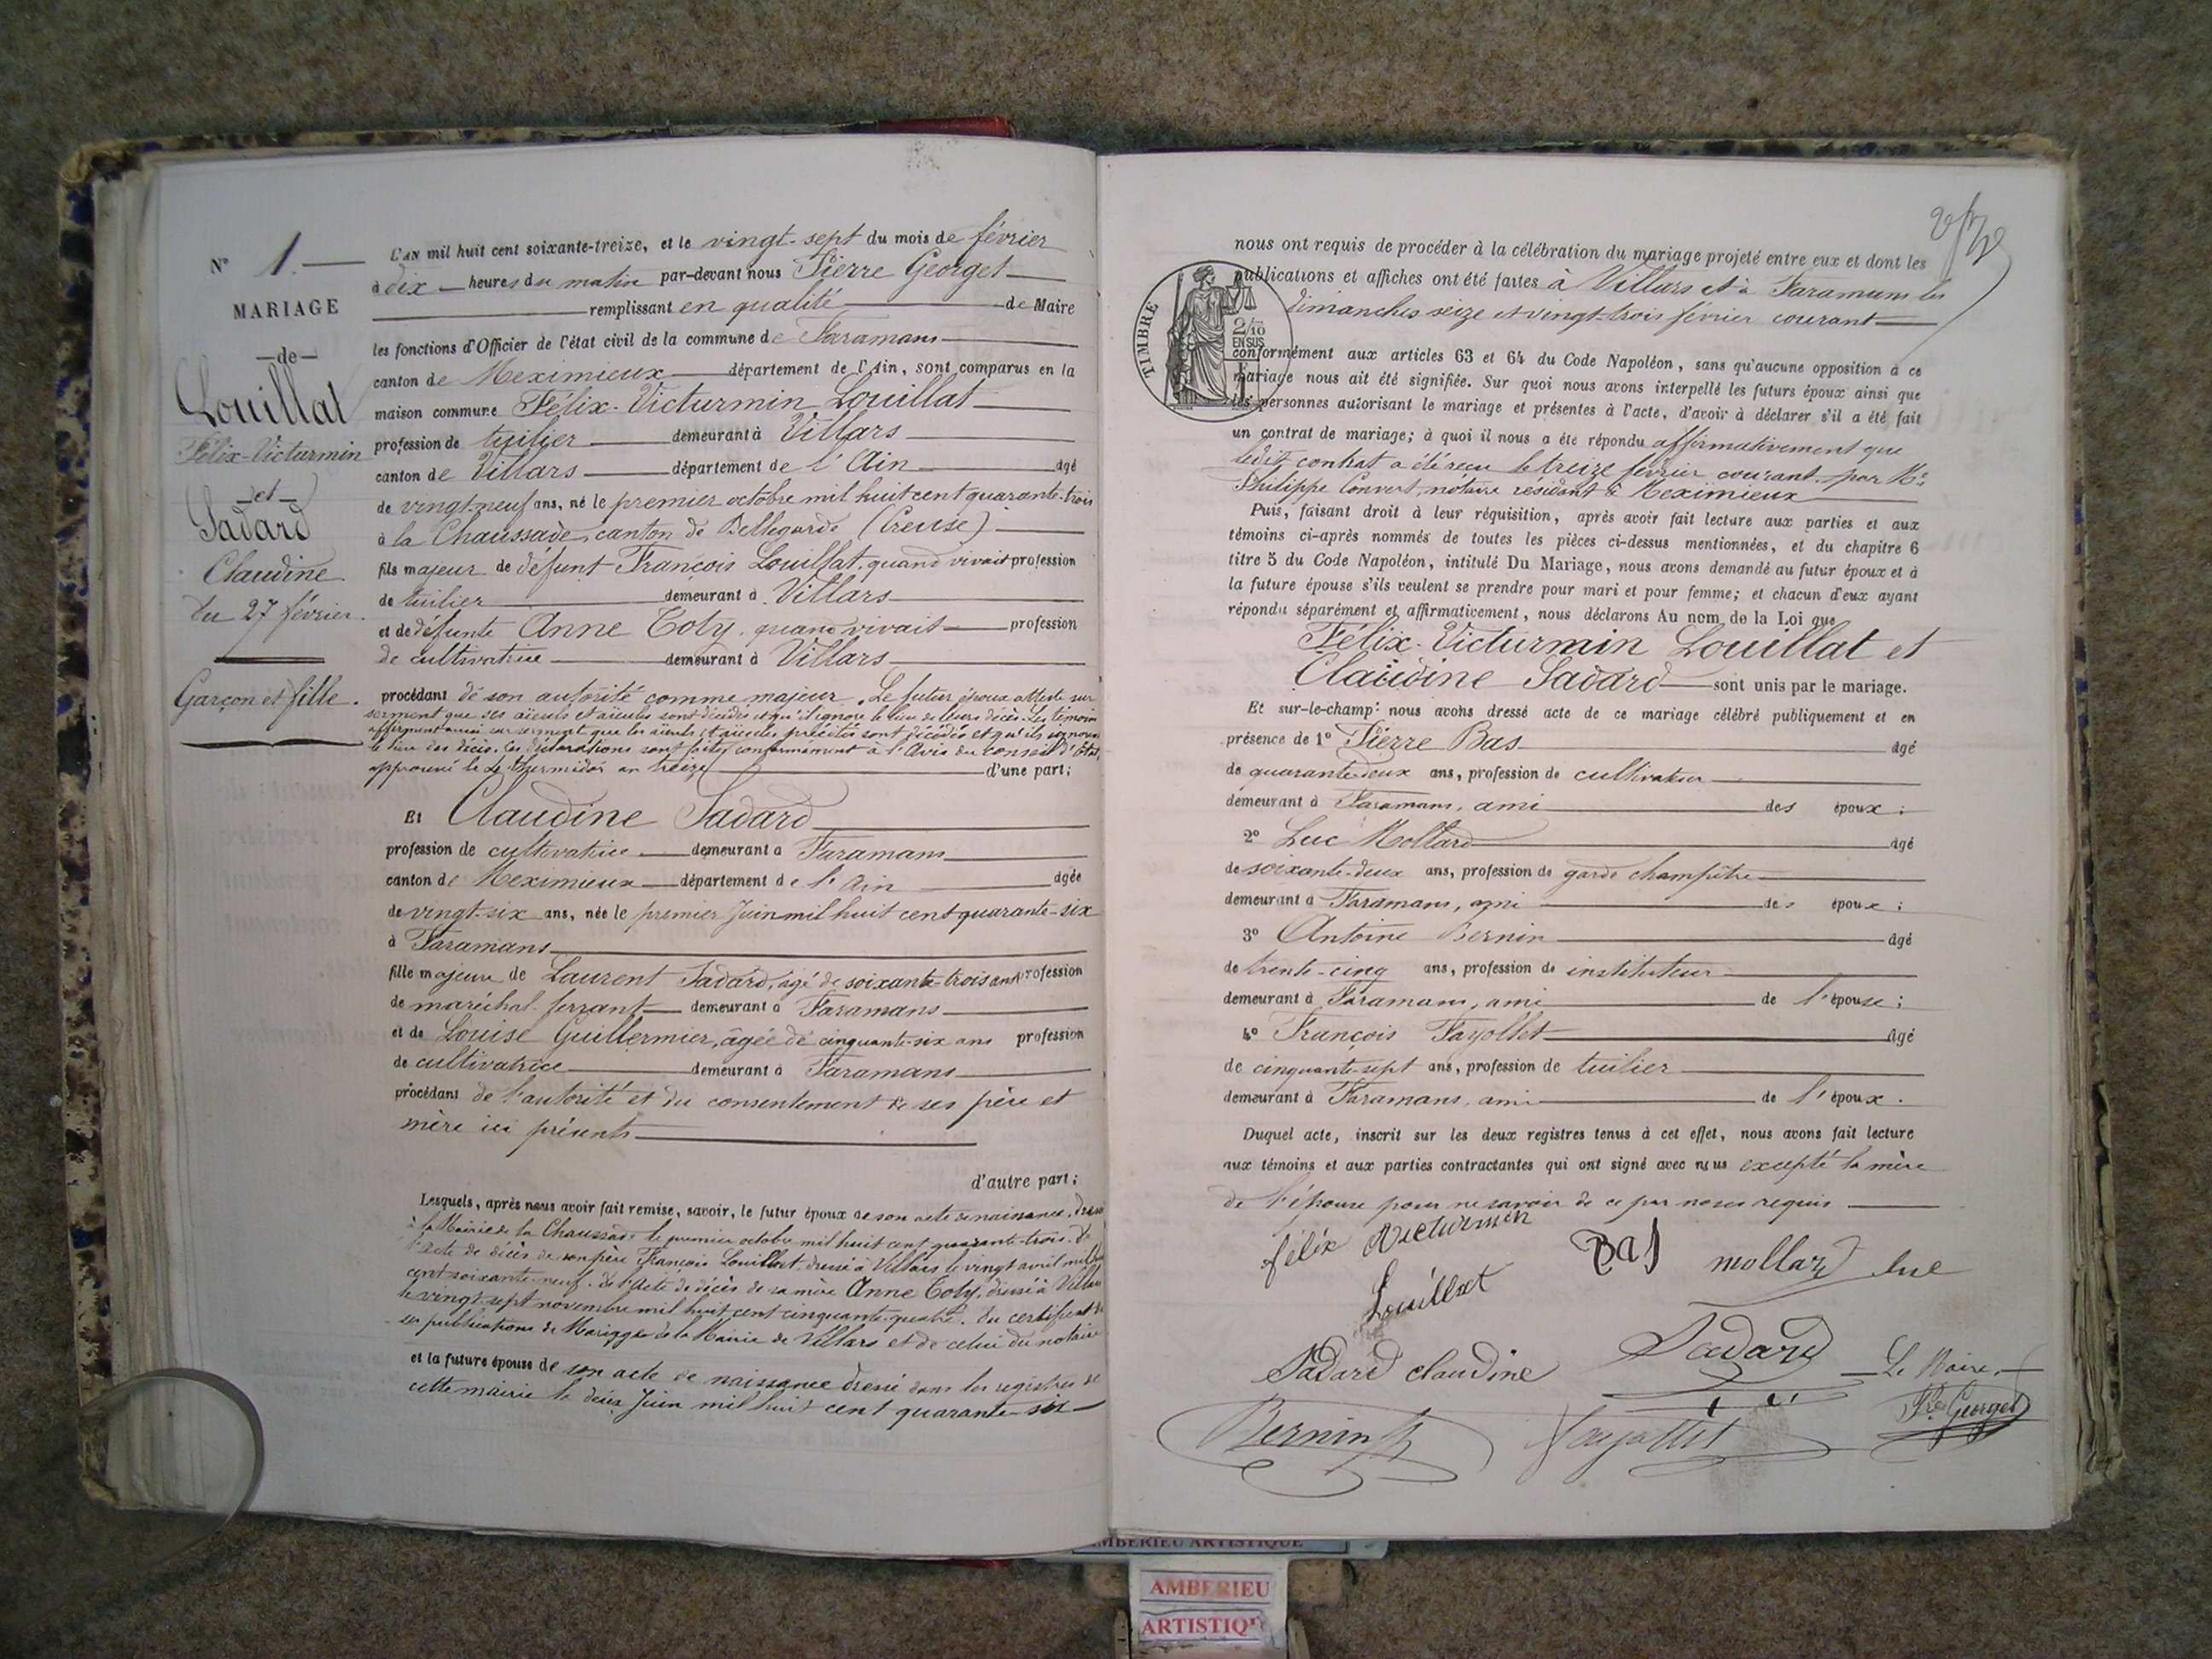 N° 1.
MARIAGE
de
Louillat
Félix-Victurmin
et
Sadard
Claudine
du 27 février.
Garçon et fille.
L'AN mil huit cent soixante-treize, et le vingt-sept du mois de février
à dix heures du matin par-devant nous Pierre Georget
remplissant en qualité de Maire
les fonctions d'Officier de l'état civil de la commune de Faramans
canton de Meximieux département de l'Ain, sont comparus en la
maison commune Félix-Victurmin Louillat
profession de tuilier demeurant à Villars
canton de Villars département de l'Ain âgé
de vingt-neuf ans, né le premier octobre mil huit cent quarante-trois
à la Chaussade, canton de Bellegarde (Creuse)
fils majeur de défunt François Louillat, quand vivait profession
de tuilier demeurant à Villars
et de défunte Anne Toty, quand vivait profession
de cultivatrice demeurant à Villars
procédant de son autorité comme majeur. Le futur époux atteste sur
serment que ses aïeuls et aïeules sont décédés et qu'il ignore le lieu de leurs décès. Les témoins
affirment aussi sur serment que les aïeuls et aïeules précités sont décédés et qu'ils ignorent
le lieu des décès. Ces déclarations sont faites conformément à l'Avis du conseil d'État,
approuvé le 4 thermidor an treize d'une part;
Et Claudine Sadard
profession de cultivatrice demeurant à Faramans
canton de Meximieux département de l'Ain âgée
de vingt-six ans, née le premier Juin mil huit cent quarante-six
à Faramans
fille majeure de Laurent Sadard, âgé de soixante-trois ans profession
de maréchal-ferrant demeurant à Faramans
et de Louise Guillermier, âgée de cinquante-six ans profession
de cultivatrice demeurant à Faramans
procédant de l'autorité et du consentement de ses père et
mère ici présents
d'autre part;
Lesquels, après nous avoir fait remise, savoir, le futur époux de son acte de naissance, dressé
à la Mairie de la Chaussade le premier octobre mil huit cent quarante-trois. De
l'acte de décès de son père François Louillat, dressé à Villars le vingt avril mil huit
cent soixante-neuf. de l'acte de décès de sa mère Anne Toty, dressé à Villars
le vingt-sept novembre mil huit cent cinquante-quatre. du certificat de
ses publications de Mariage de la Mairie de Villars et de celui du notaire
et la future épouse de son acte de naissance dressé dans les registres de
cette mairie le deux Juin mil huit cent quarante-six
nous ont requis de procéder à la célébration du mariage projeté entre eux et dont les
publications et affiches ont été faites à Villars et à Faramans les
dimanches seize et vingt-trois février courant
TIMBRE
2/10
EN SUS
conformément aux articles 63 et 64 du Code Napoléon, sans qu'aucune opposition à ce
mariage nous ait été signifiée. Sur quoi nous avons interpellé les futurs époux ainsi que
les personnes autorisant le mariage et présentes à l'acte, d'avoir à déclarer s'il a été fait
un contrat de mariage; à quoi il nous a été répondu affirmativement que
ledit contrat a été reçu le treize février courant par Me
Philippe Convert, notaire résidant à Meximieux
Puis, faisant droit à leur réquisition, après avoir fait lecture aux parties et aux
témoins ci-après nommés de toutes les pièces ci-dessus mentionnées, et du chapitre 6
titre 5 du Code Napoléon, intitulé Du Mariage, nous avons demandé au futur époux et à
la future épouse s'ils veulent se prendre pour mari et pour femme; et chacun d'eux ayant
répondu séparément et affirmativement, nous déclarons Au nom de la Loi que
Félix-Victurmin Louillat et
Claudine Sadard sont unis par le mariage.
Et sur-le-champ nous avons dressé acte de ce mariage célébré publiquement et en
présence de 1° Pierre Bas âgé
de quarante-deux ans, profession de cultivateur
demeurant à Faramans, ami des époux;
2° Luc Mollard âgé
de soixante-deux ans, profession de garde champêtre
demeurant à Faramans, ami des époux;
3° Antoine Bernin âgé
de trente-cinq ans, profession de instituteur
demeurant à Faramans, ami de l'épouse;
4° François Fayollet âgé
de cinquante-sept ans, profession de tuilier
demeurant à Faramans, ami de l'époux.
Duquel acte, inscrit sur les deux registres tenus à cet effet, nous avons fait lecture
aux témoins et aux parties contractantes qui ont signé avec nous excepté la mère
de l'épouse pour ne savoir de ce par nous requis
félix Victurmin
Louillat
Bas mollard luc
Sadard claudine
Sadard
Le Maire,
Bernin
Fayollet
Pre Georget
AMBERIEU ARTISTIQUE
AMBERIEU
ARTISTIQU